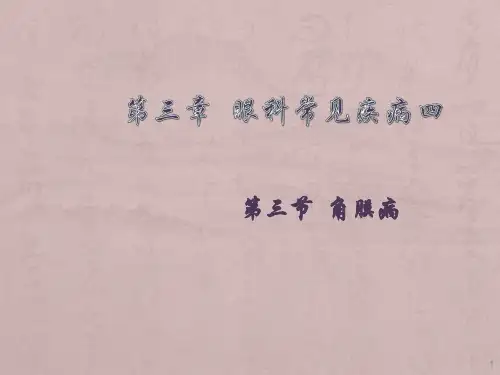 第三章 眼科常见疾病四
第三节 角膜病
1